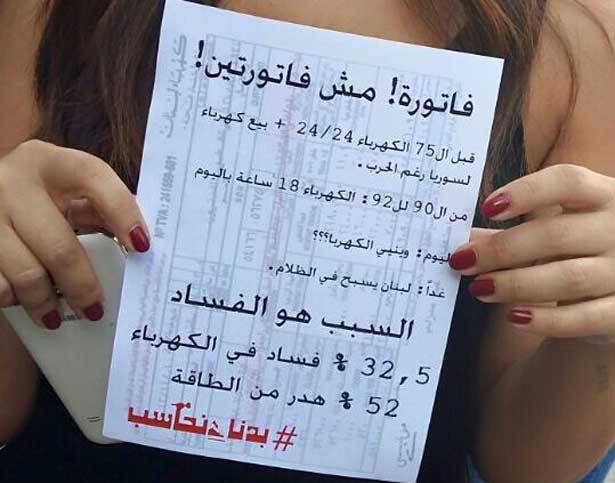 فاتورة! مش فاتورتين!
قبل ال75 الكهرباء 24/24 + بيع كهرباء
لسوريا رغم الحرب.
من ال90 لل92: الكهرباء 18 ساعة باليوم
اليوم: وينيي الكهربا؟؟؟
غداً: لبنان يسبح في الظلام.
السبب هو الفساد
32,5 % فساد في الكهرباء
52 % هدر من الطاقة
#بدنا_نحاسب